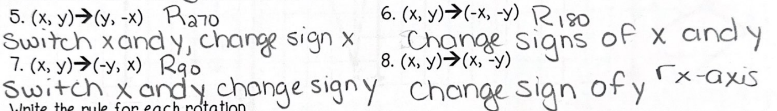 5. (x, y)→(y, -x) R270
Switch x and y, change sign x
6. (x, y)→(-x, -y) R180
Change signs of x and y
7. (x, y)→(-y, x) R90
Switch x and y change sign y
8. (x, y)→(x, -y)
Change sign of y rx-axis
Write the rule for each rotation